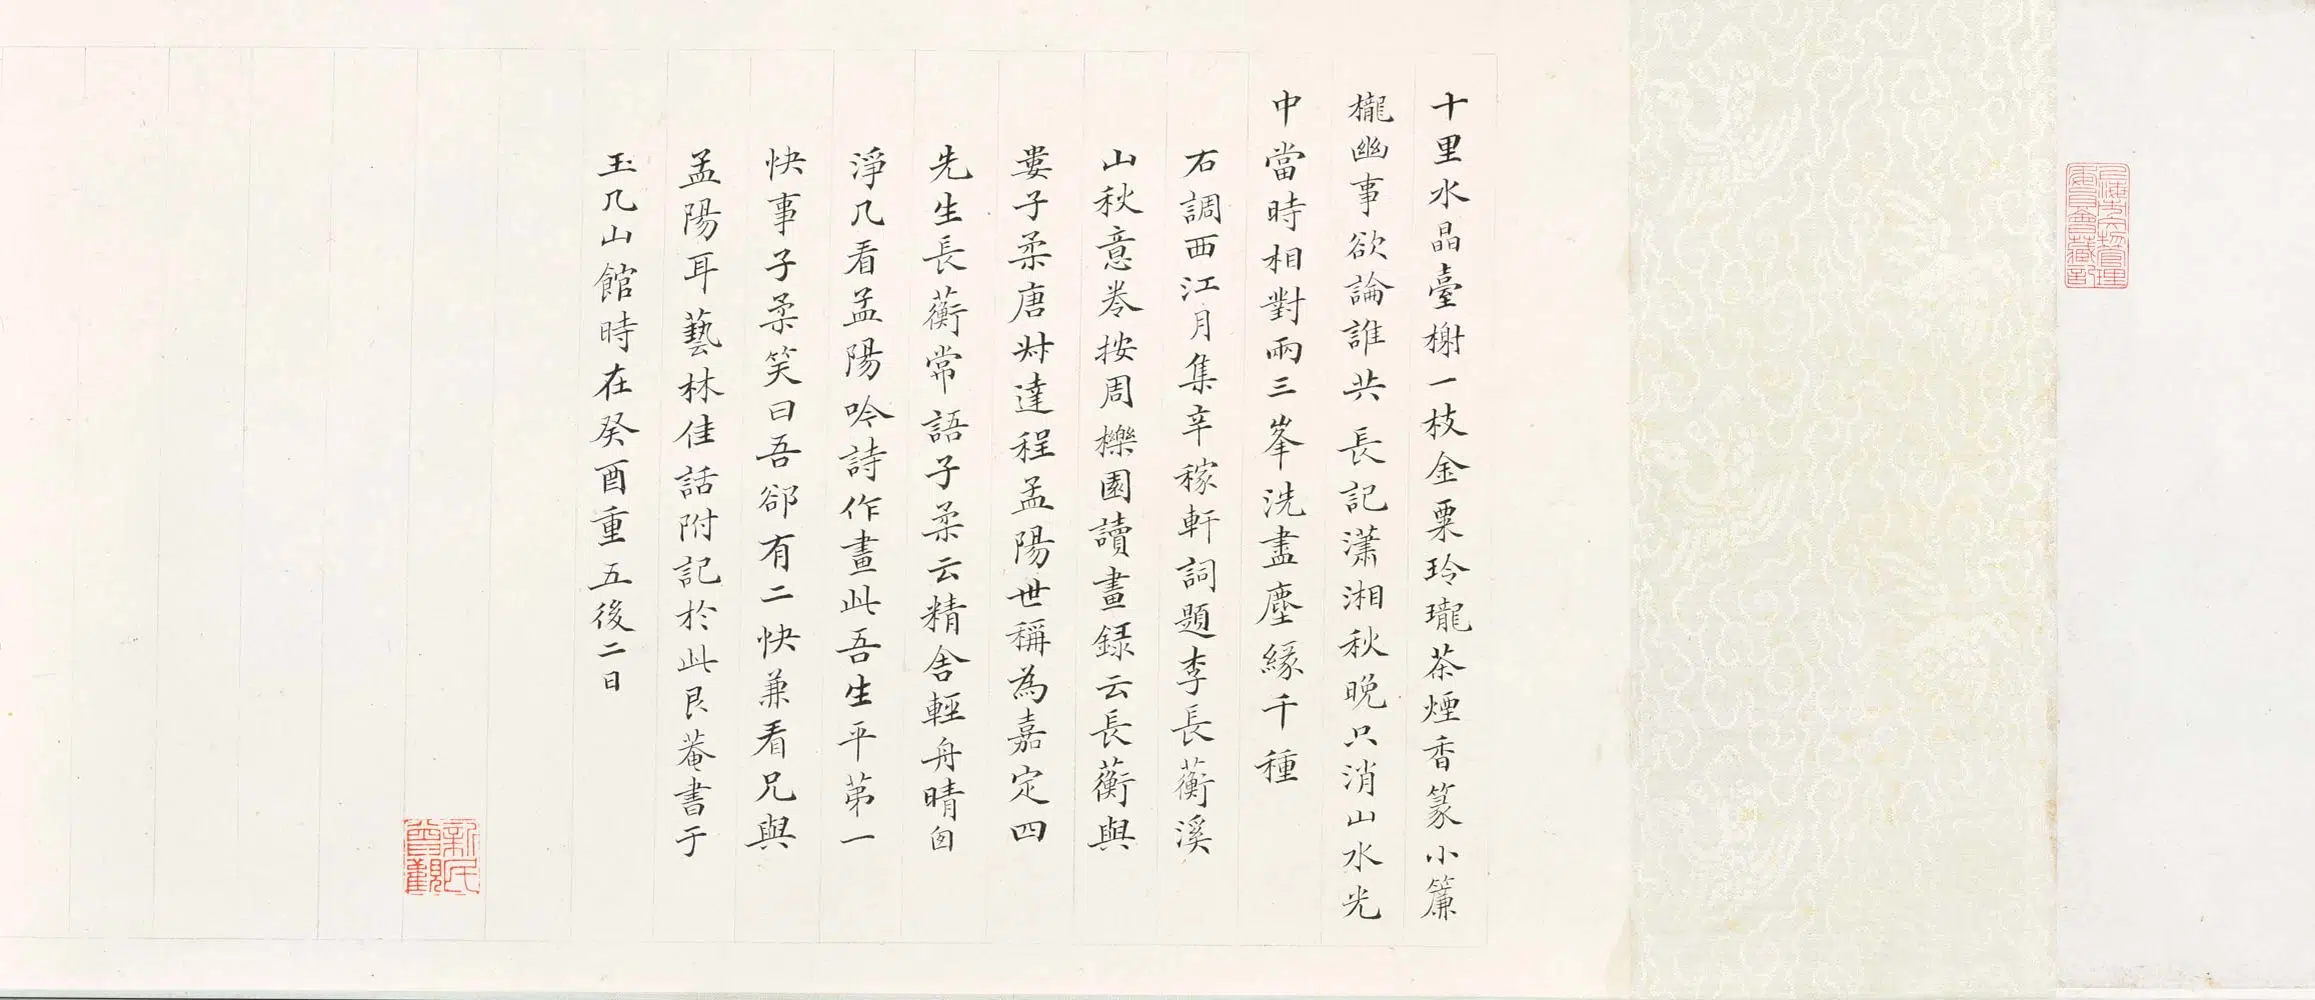 十里水晶臺榭一枝金粟玲瓏茶煙香篆小簾
櫳幽事欲論誰共長記瀟湘秋晚只消山水光
中當時相對兩三峯洗盡塵緣千種
右調西江月集辛稼軒詞題李長蘅溪
山秋意卷按周櫟園讀畫錄云長蘅與
婁子柔唐叔達程孟陽世稱為嘉定四
先生長蘅常語子柔云精舍輕舟晴囪
淨几看孟陽吟詩作畫此吾生平第一
快事子柔笑曰吾卻有二快兼看兄與
孟陽耳藝林佳話附記於此艮菴書于
玉几山館時在癸酉重五後二日
新民
曾觀
上海市文物管理
委員會藏記